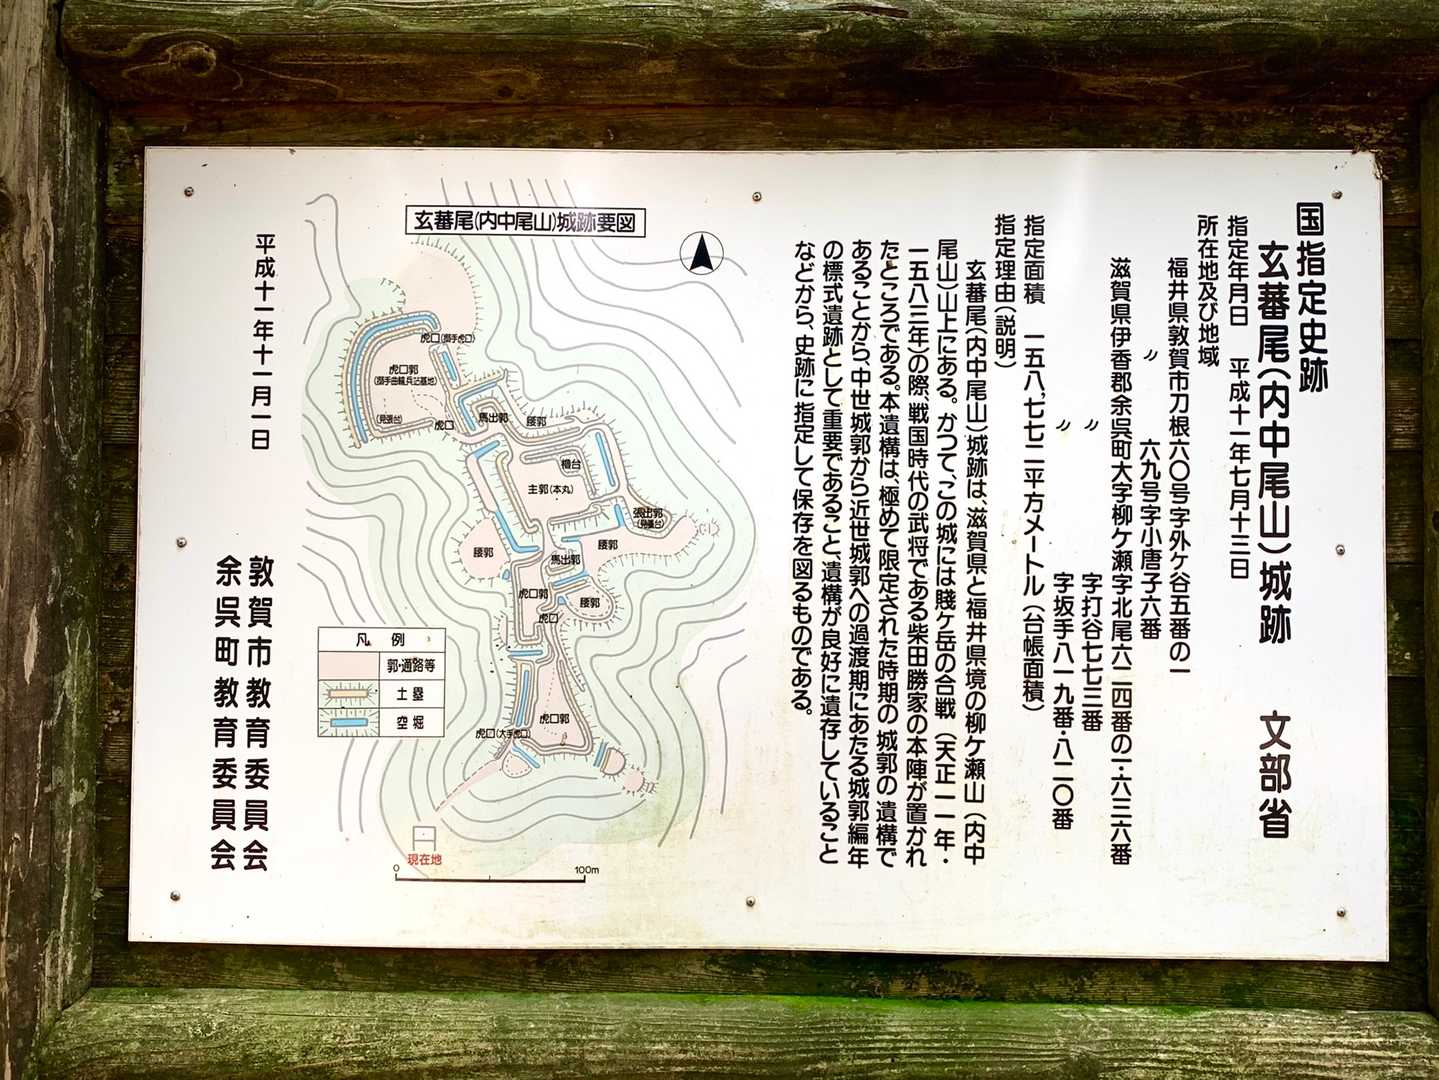 国指定史跡
玄蕃尾(内中尾山)城跡 文部省
指定年月日 平成十一年七月十三日
所在地及び地域
福井県敦賀市刀根六〇号字外ケ谷五番の一
〃 六九号字小唐子六番
滋賀県伊香郡余呉町大字柳ケ瀬字北尾六二四番の一・六三六番
〃 字打谷七七三番
〃 字坂手八一九番・八二〇番
指定面積 一五八,七七二平方メートル(台帳面積)
指定理由(説明)
玄蕃尾(内中尾山)城跡は、滋賀県と福井県境の柳ケ瀬山(内中
尾山)山上にある。かつて、この城には賤ケ岳の合戦(天正一一年・
一五八三年)の際、戦国時代の武将である柴田勝家の本陣が置かれ
たところである。本遺構は、極めて限定された時期の城郭の遺構で
あることから、中世城郭から近世城郭への過渡期にあたる城郭編年
の標式遺跡として重要であること、遺構が良好に遺存していること
などから、史跡に指定して保存を図るものである。
玄蕃尾(内中尾山)城跡要図
虎口(搦手虎口)
虎口郭
(搦手曲輪兵站基地)
(見張台)
虎口
馬出郭
腰郭
櫓台
主郭(本丸)
張出郭
(見張台)
腰郭
腰郭
馬出郭
虎口郭
腰郭
虎口
虎口郭
虎口(大手虎口)
凡例
郭・通路等
土塁
空堀
現在地
0 100m
平成十一年十一月一日
敦賀市教育委員会
余呉町教育委員会